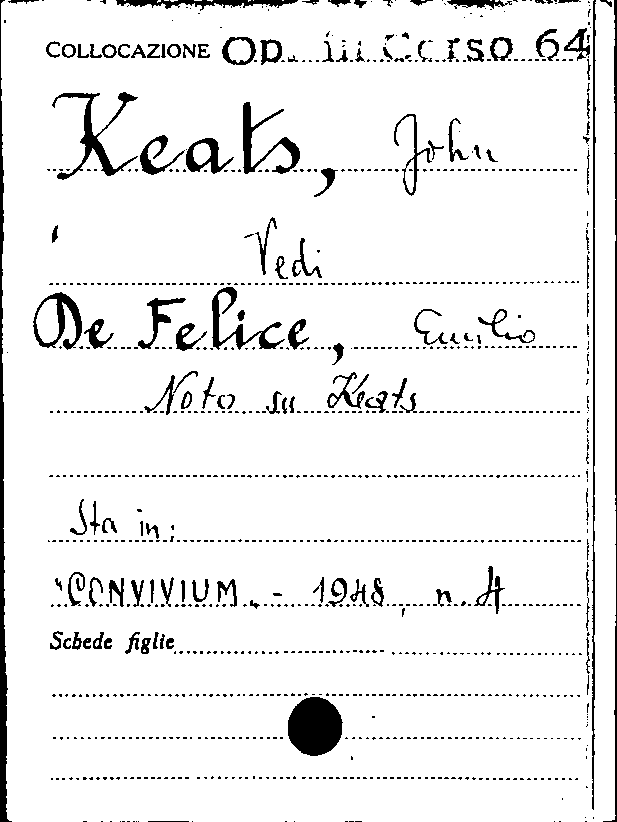 COLLOCAZIONE Op. in Corso 64
Keats, John
Vedi
De Felice, Emilio
Noto su Keats
Sta in:
"CONVIVIUM. - 1948, n. 4
Schede figlie